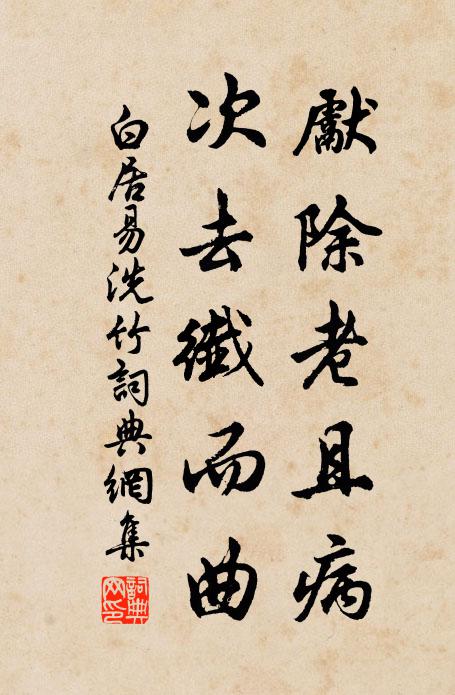 獻除老且病
次去纖而曲
白居易洗竹詞典網集
詞典
网印